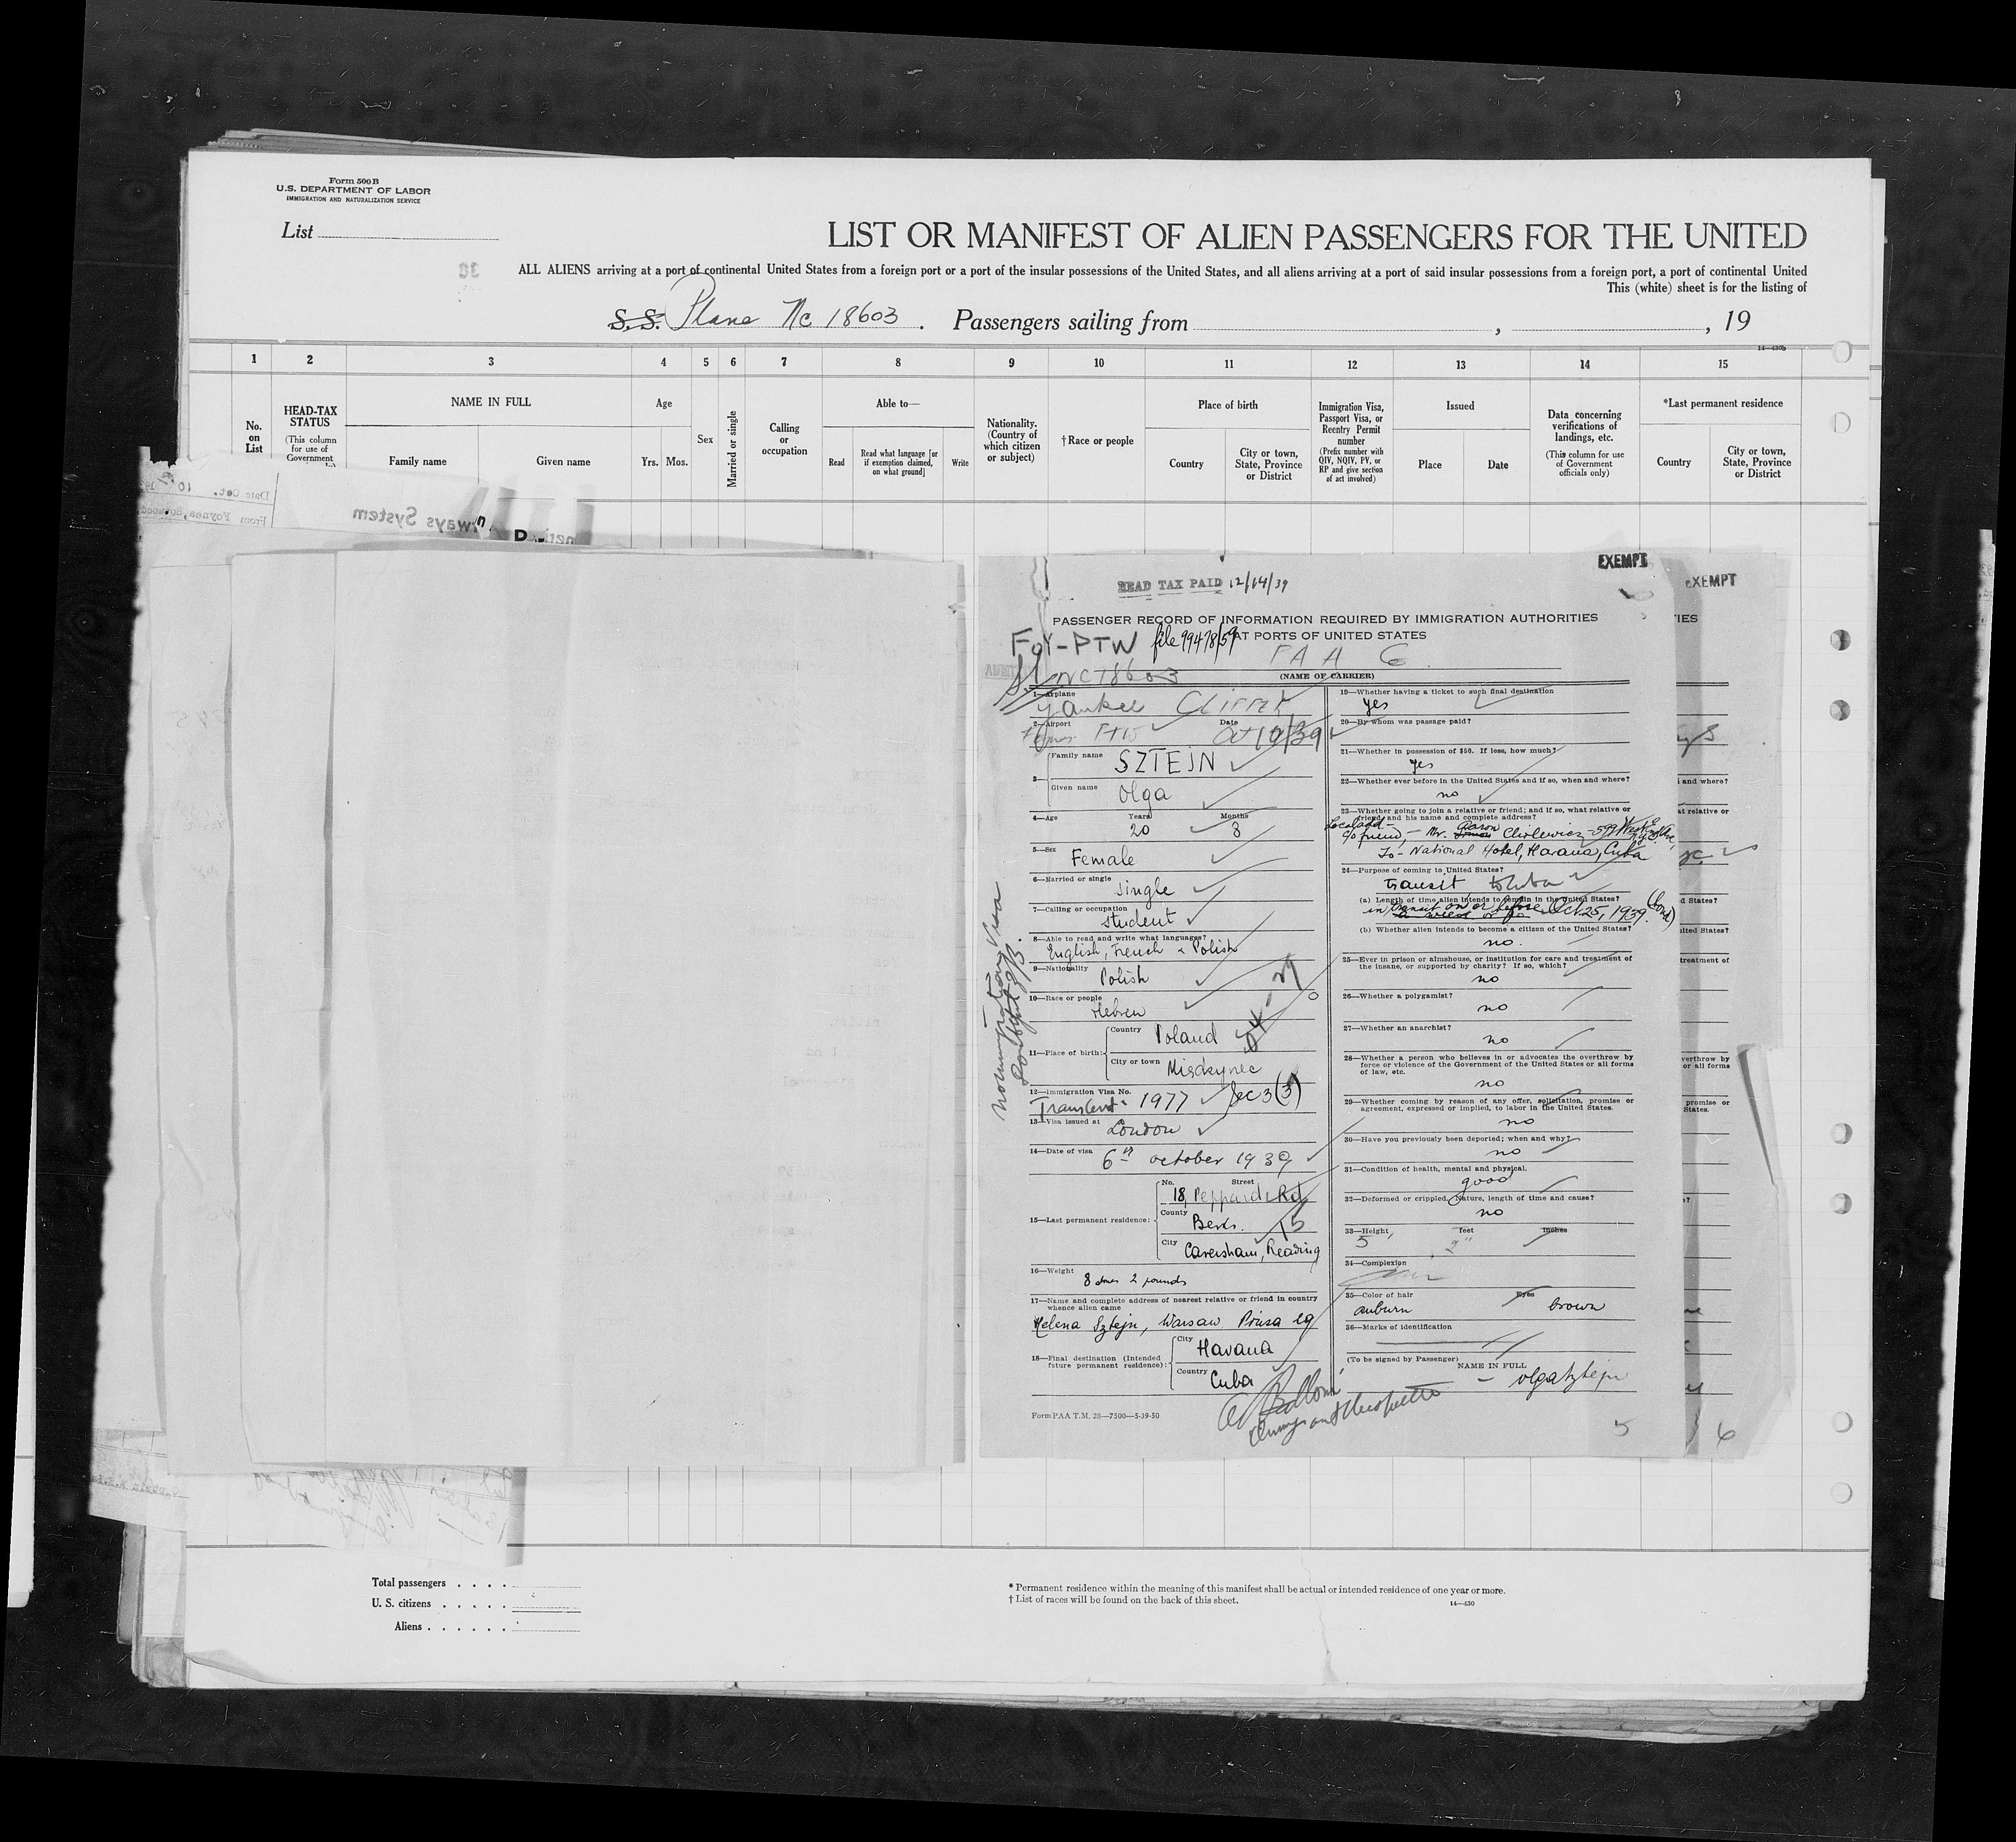 Form 500 B
U.S. DEPARTMENT OF LABOR
IMMIGRATION AND NATURALIZATION SERVICE
List
LIST OR MANIFEST OF ALIEN PASSENGERS FOR THE UNITED
ALL ALIENS arriving at a port of continental United States from a foreign port or a port of the insular possessions of the United States, and all aliens arriving at a port of said insular possessions from a foreign port, a port of continental United
This (white) sheet is for the listing of
S.S. Plane Nc 18603. Passengers sailing from , , 19
14—430b
1 2 3 4 5 6 7 8 9 10 11 12 13 14 15
No. on List
HEAD-TAX STATUS
(This column for use of Government
NAME IN FULL
Family name
Given name
Age
Yrs. Mos.
Sex
Married or single
Calling or occupation
Able to—
Read
Read what language [or if exemption claimed, on what ground]
Write
Nationality. (Country of which citizen or subject)
†Race or people
Place of birth
Country
City or town, State, Province or District
Immigration Visa, Passport Visa, or Reentry Permit number
(Prefix number with QIV, NQIV, PV, or RP and give section of act involved)
Issued
Place
Date
Data concerning verifications of landings, etc.
(This column for use of Government officials only)
*Last permanent residence
Country
City or town, State, Province or District
Date Oct. 10
From Foynes,
ways System
EXEMPT
EXEMPT
HEAD TAX PAID 12/14/39
PASSENGER RECORD OF INFORMATION REQUIRED BY IMMIGRATION AUTHORITIES
AT PORTS OF UNITED STATES
FOY-PTW file 99478/59
PAA
NC18603
(NAME OF CARRIER)
1—Airplane
Yankee Clipper
2—Airport Date
PTW Oct 10/39
3— Family name SZTEJN
Given name Olga
4—Age Years 20 Months 8
5—Sex Female
6—Married or single single
7—Calling or occupation student
8—Able to read and write what languages?
English, French & Polish
9—Nationality Polish
10—Race or people Hebrew
11—Place of birth: Country Poland
City or town
12—Immigration Visa No.
Transient 1977 Sec 3(3)
13—Visa issued at London
14—Date of visa 6th october 1939
15—Last permanent residence:
No. Street 18, Peppard Rd
County Berks.
City Caversham, Reading
16—Weight 8 2 pounds
17—Name and complete address of nearest relative or friend in country whence alien came
Helena Sztejn, Warsaw
18—Final destination (Intended future permanent residence):
City Havana
Country Cuba
Form PAA T.M. 28—7500—5-39-50
19—Whether having a ticket to such final destination
yes
20—By whom was passage paid?
21—Whether in possession of $50. If less, how much?
yes
22—Whether ever before in the United States and if so, when and where?
no
23—Whether going to join a relative or friend; and if so, what relative or friend and his name and complete address?
c/o friend, - Mr. Aaron
To - National Hotel, Havana, Cuba
24—Purpose of coming to United States?
transit to Cuba
(a) Length of time alien intends to remain in the United States?
in transit on or before Oct 25, 1939. (bond)
(b) Whether alien intends to become a citizen of the United States?
no.
25—Ever in prison or almshouse, or institution for care and treatment of the insane, or supported by charity? If so, which?
no
26—Whether a polygamist?
no
27—Whether an anarchist?
no
28—Whether a person who believes in or advocates the overthrow by force or violence of the Government of the United States or all forms of law, etc.
no
29—Whether coming by reason of any offer, solicitation, promise or agreement, expressed or implied, to labor in the United States.
no
30—Have you previously been deported; when and why?
no
31—Condition of health, mental and physical.
good
32—Deformed or crippled. Nature, length of time and cause?
no
33—Height feet inches
5' 2"
34—Complexion
35—Color of hair Eyes
auburn brown
36—Marks of identification
(To be signed by Passenger)
NAME IN FULL
olga Sztejn
5
6
Total passengers
U. S. citizens
Aliens
* Permanent residence within the meaning of this manifest shall be actual or intended residence of one year or more.
† List of races will be found on the back of this sheet.
14—430